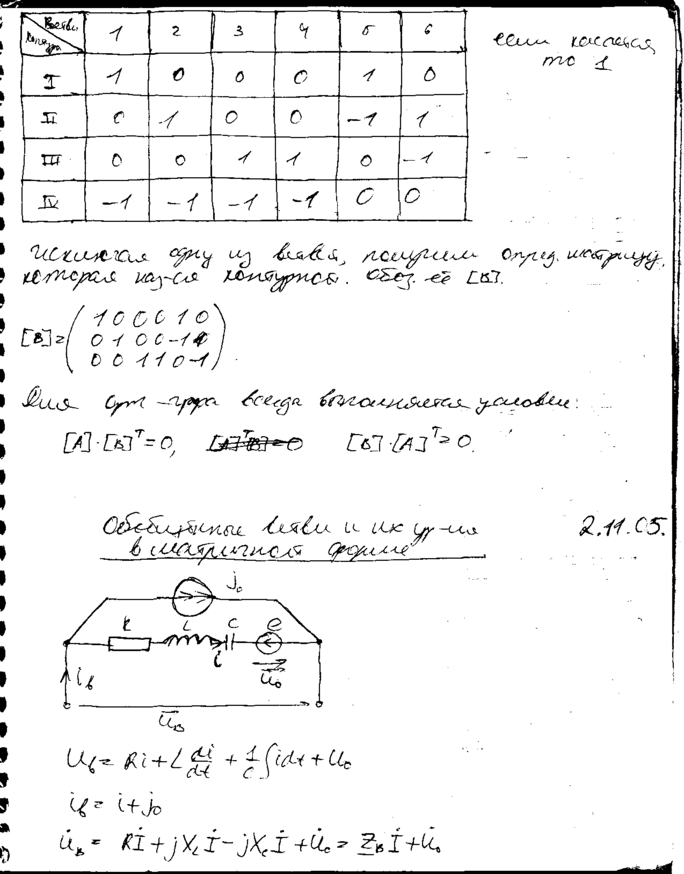 Ветви 1 2 3 4 5 6
Контура
I 1 0 0 0 1 0
II 0 1 0 0 -1 1
III 0 0 1 1 0 -1
IV -1 -1 -1 -1 0 0
если касается
то 1
Исключая одну из ветвей, получим опред. матрицу,
которая наз-ся контурной. Обоз. её [B].
[B]=(1 0 0 0 1 0
0 1 0 0 -1 1
0 0 1 1 0 -1)
Для орт-графа всегда выполняется условие:
[A]·[B]ᵀ=0, [B]·[A]ᵀ=0.
Обобщённые ветви и их ур-ия
в матричной форме
2.11.05.
j₀
R L C e
i
U₀
i_в
U_в
U_в = Ri + L di/dt + 1/C ∫idt + U₀
i_в = i + j₀
U̇_в = Rİ + jX_Lİ - jX_cİ + U̇₀ = Z_вİ + U̇₀